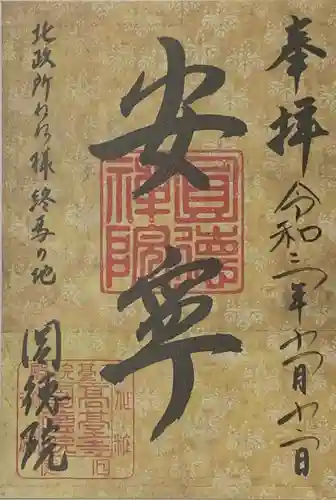 奉拝 令和三年十一月十三日
安寧
圓徳禅院
北政所ねね様終焉の地
圓徳院